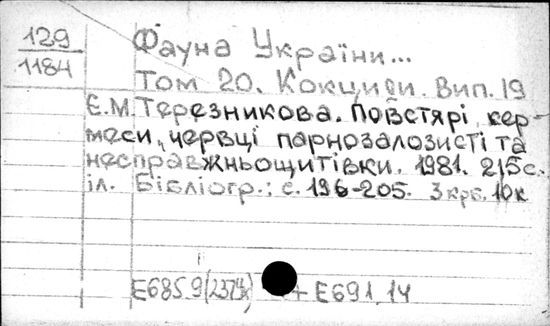 129
1184
Фауна України...
Том 20. Кокциди. Вип. 19
Є.М. Терезникова. Повстярі, кер-
меси, червці парнозалозисті та
несправжньощитівки. 1981. 215с.
іл. Бібліогр.: с. 196-205. 3 крб. 10к
Е685.9 + Е691.14